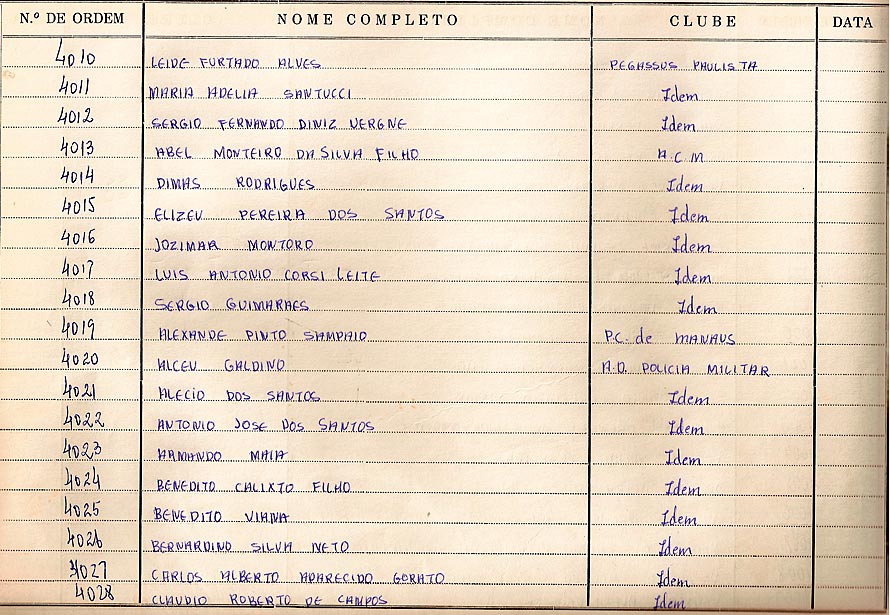 N.º DE ORDEM NOME COMPLETO CLUBE DATA
4010 LEIDE FURTADO ALVES PEGASSUS PAULISTA
4011 MARIA ADELIA SANTUCCI Idem
4012 SERGIO FERNANDO DINIZ VERGNE Idem
4013 ABEL MONTEIRO DA SILVA FILHO A.C.M
4014 DIMAS RODRIGUES Idem
4015 ELIZEU PEREIRA DOS SANTOS Idem
4016 JOZIMAR MONTORO Idem
4017 LUIS ANTONIO CORSI LEITE Idem
4018 SERGIO GUIMARAES Idem
4019 ALEXANDE PINTO SAMPAIO P.C. de MANAUS
4020 ALCEU GALDINO A.D. POLICIA MILITAR
4021 ALECIO DOS SANTOS Idem
4022 ANTONIO JOSE DOS SANTOS Idem
4023 ARMANDO MAIA Idem
4024 BENEDITO CALIXTO FILHO Idem
4025 BENEDITO VIANA Idem
4026 BERNARDINO SILVA NETO Idem
4027 CARLOS ALBERTO APARECIDO GORATO Idem
4028 CLAUDIO ROBERTO DE CAMPOS Idem